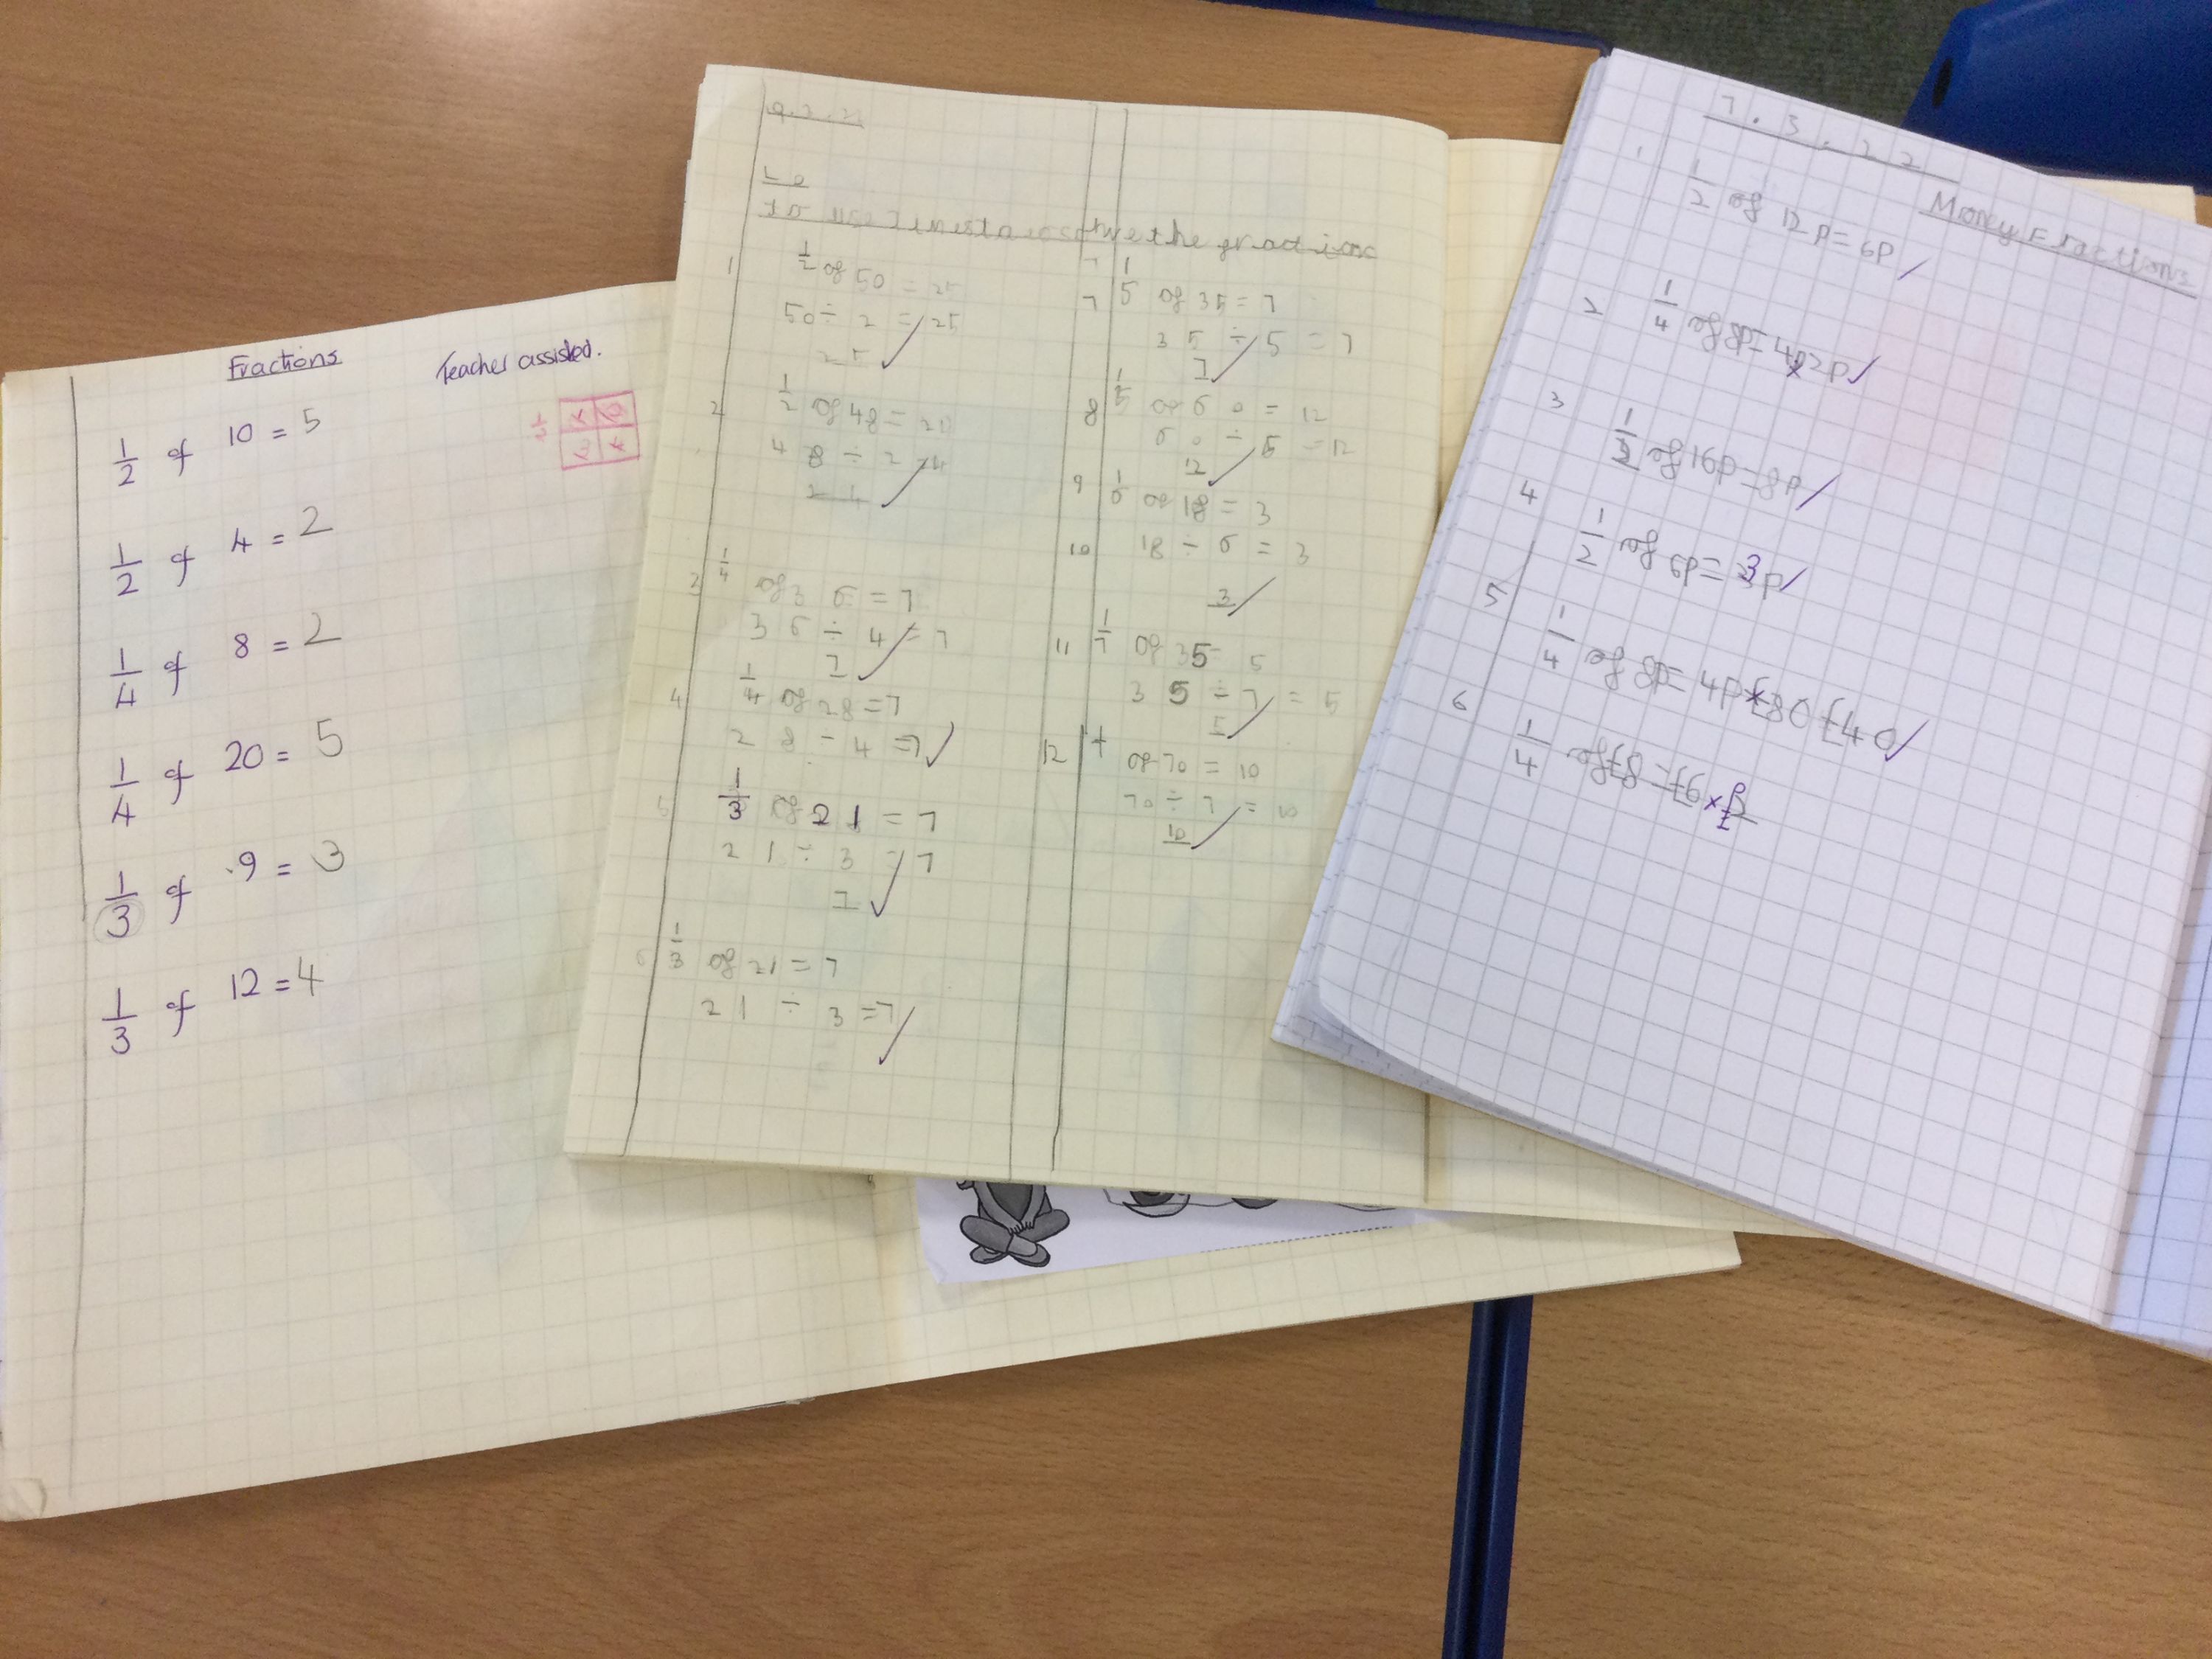 Fractions
Teacher assisted.
1/2 of 10 = 5
1/2 of 4 = 2
1/4 of 8 = 2
1/4 of 20 = 5
1/3 of 9 = 3
1/3 of 12 = 4
1/2
L o
to use the fractions
1 1/2 of 50 = 25
50 ÷ 2 = 25
25
2 1/2 of 48 =
48 ÷ 2 = 24
24
3 1/4 of 36 = 7
36 ÷ 4 = 7
7
4 1/4 of 28 = 7
28 ÷ 4 = 7
5 1/3 of 21 = 7
21 ÷ 3 = 7
7
6 1/3 of 21 = 7
21 ÷ 3 = 7
7 1/5 of 35 = 7
35 ÷ 5 = 7
7
8 1/5 of 60 = 12
60 ÷ 5 = 12
12
9 1/6 of 18 = 3
10 18 ÷ 6 = 3
3
11 1/7 of 35 = 5
35 ÷ 7 = 5
5
12 of 70 = 10
70 ÷ 7 = 10
10
7.3.22
Money Fractions
1 1/2 of 12p = 6p
2 1/4 of 8p = 4p 2p
3 1/2 of 16p = 8p
4 1/2 of 6p = 3p
5 1/4 of 8p = 4p £80 £40
6 1/4 of £8 = £9